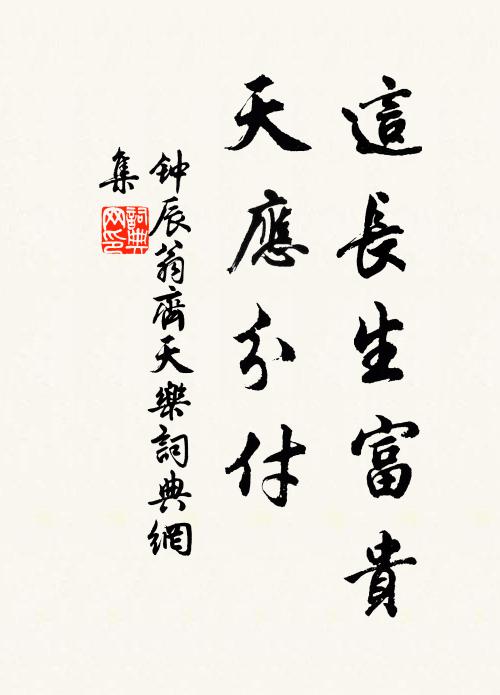 這長生富貴
天應分付
钟辰翁齊天樂詞典網
集
詞典
网印